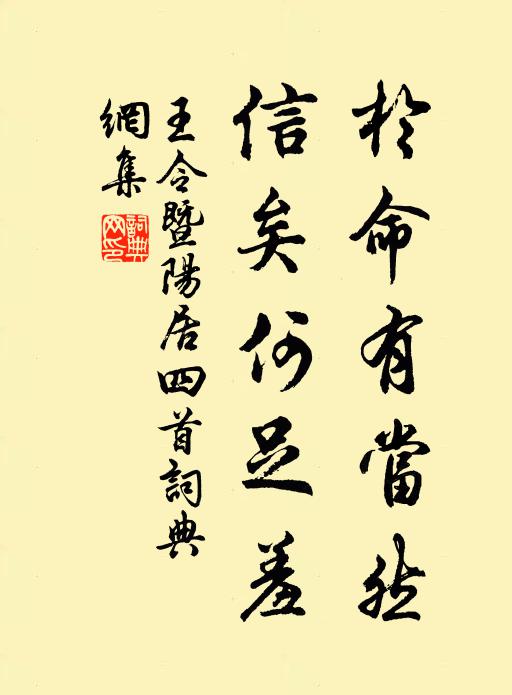 於命有當然
信矣何足羞
王令暨陽居四首詞典
網集
詞典網印